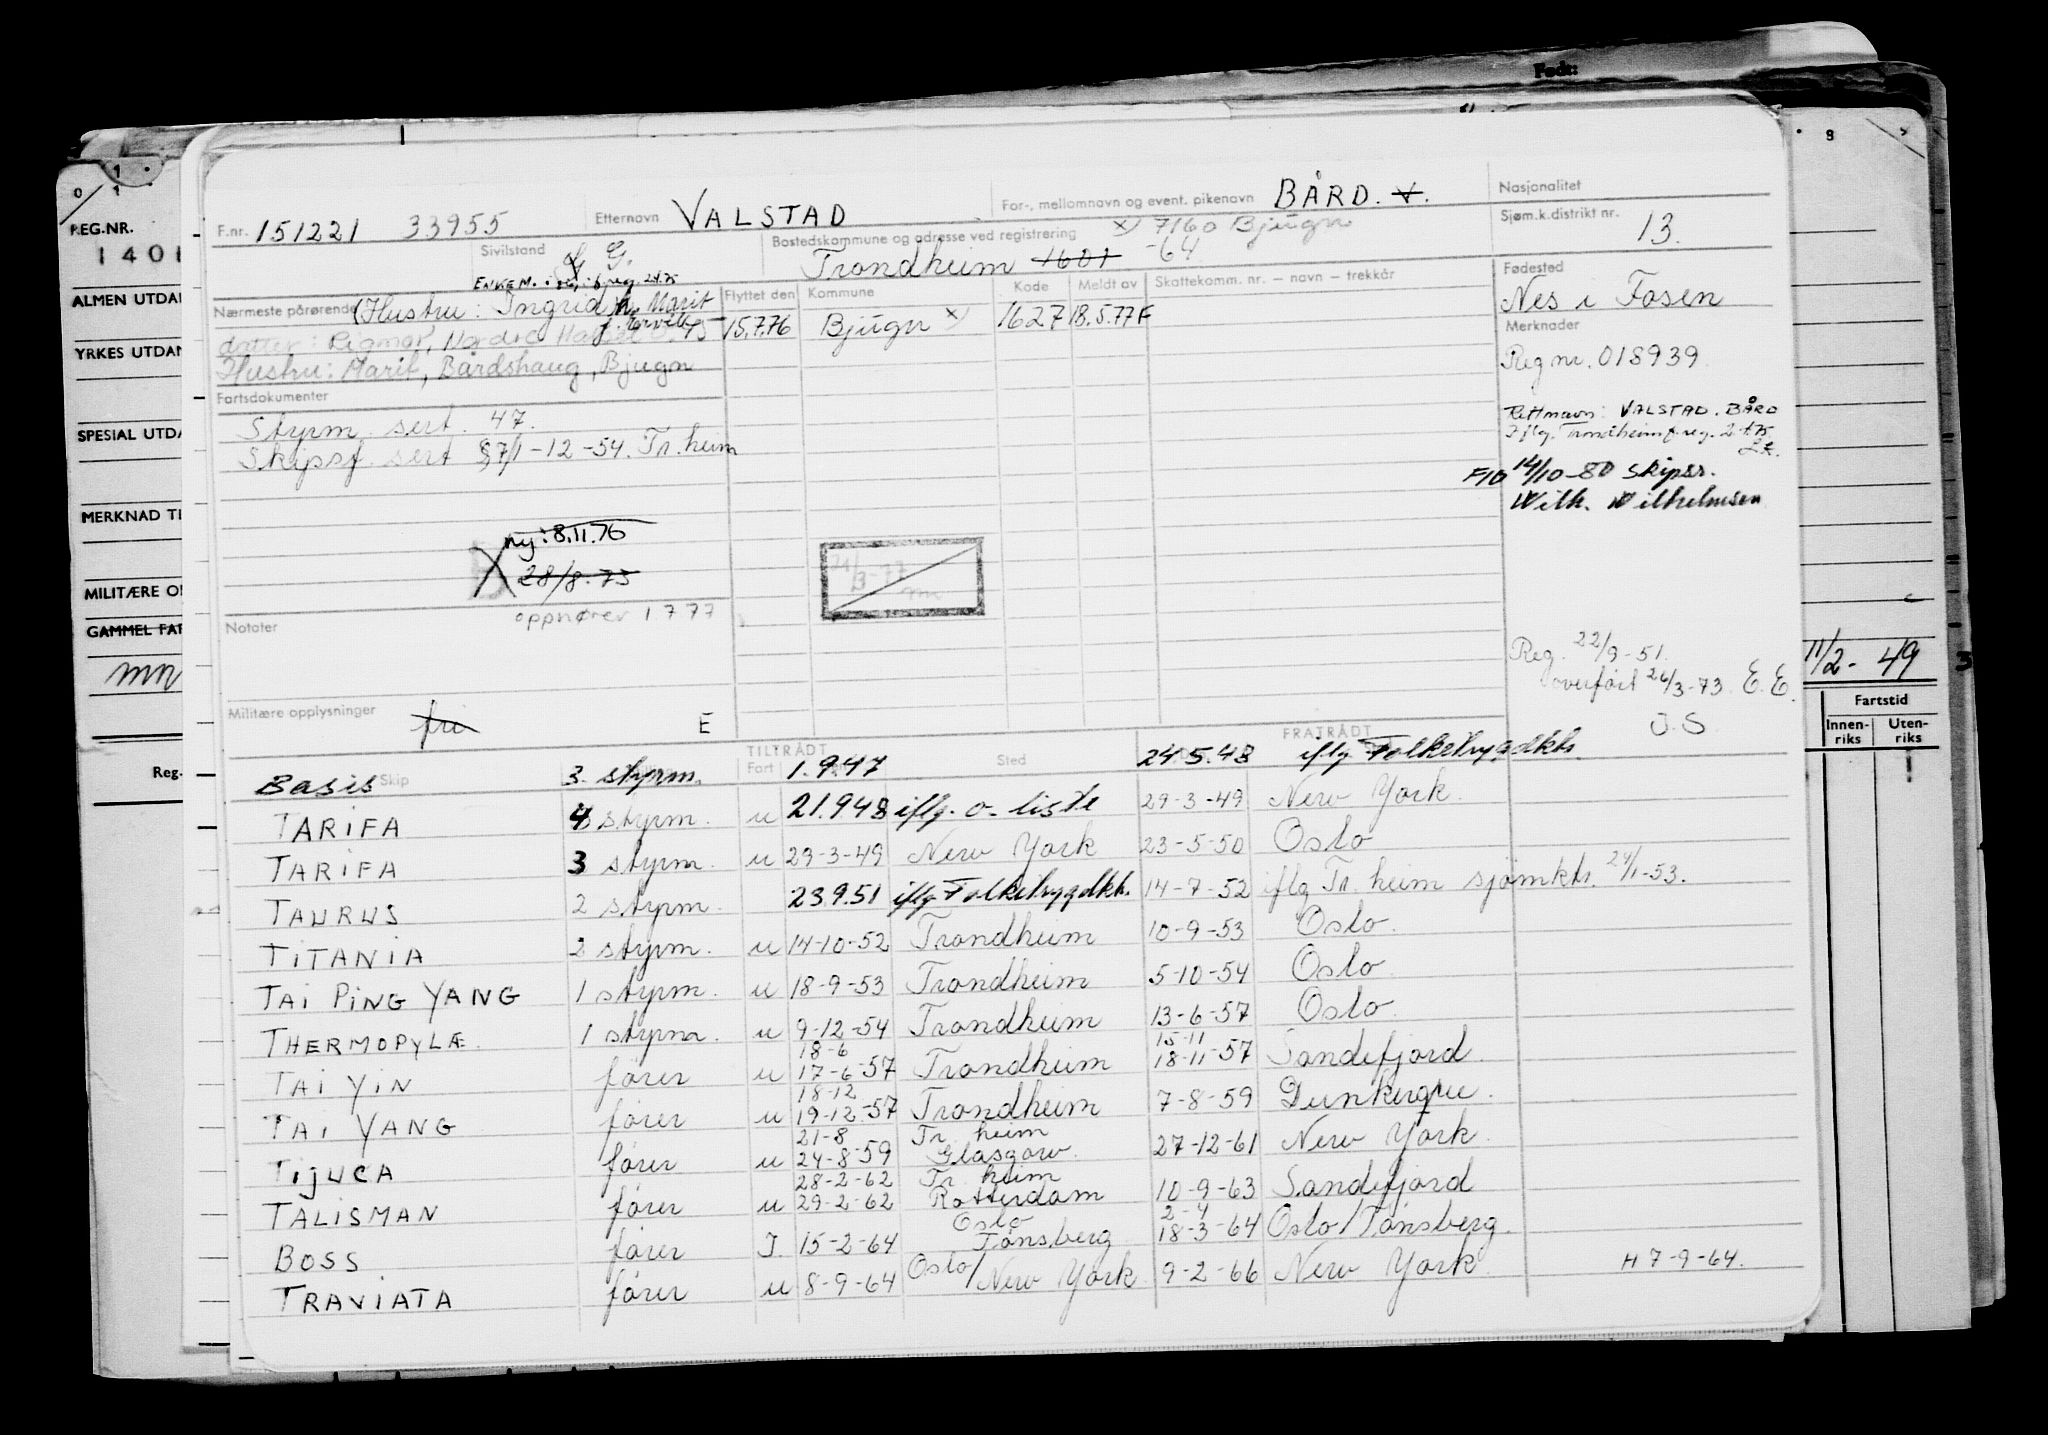 Født:
REG.NR.
1401
ALMEN UTDA
YRKES UTDAN
SPESIAL UTDA
MERKNAD TI
MILITÆRE O
GAMMEL FAR
mn
Reg.
F.nr. 151221 33955 Etternavn VALSTAD For-, mellomnavn og event. pikenavn BÅRD. V. Nasjonalitet
Sivilstand G. Bostedskommune og adresse ved registrering x) 7160 Bjugn Sjøm.k.distrikt nr. 13.
Trondheim 1601 -64
ENKEM.
Nærmeste pårørende (Hustru: Ingrid Marit Flyttet den Kommune Kode Meldt av Skattekomm. nr. – navn – trekkår Fødested
Nes i Fosen
datter: Rigmor, Nordre 15.7.76 Bjugn x) 1627 18.5.77 F Merknader
Hustru: Marit, Bårdshaug, Bjugn Reg nr. 018939
Fartsdokumenter
Styrm. sert. 47. Rettnavn: VALSTAD. BÅRD
Skipsf. sert §7/1-12-54. Tr.heim Iflg. Trondheim f.reg. 2.1.75
F10 14/10-80 skipsr.
Wilh. Wilhelmsen
ny: 8.11.76
28/8.75
21/3-77
opphører 1777
Notater
Reg. 22/9-51.
overført 26/3-73. E.E.
J.S
Militære opplysninger fri E
11/2-49
Fartstid
Innen-riks Uten-riks
Skip TILTRÅDT Fort Sted FRATRÅDT
Basis 3. styrm. 1.9.47 24.5.48 iflg Folketrygdkt.
TARIFA 4 styrm. u 21.9.48 iflg. o-liste 29-3-49 New York.
TARIFA 3 styrm. u 29-3-49 New York 23-5-50 Oslo
TAURUS 2 styrm. 23.9.51 iflg Folketrygdkt. 14-7-52 iflg Tr. heim sjømkt. 24/1-53.
TITANIA 2 styrm. u 14-10-52 Trondheim 10-9-53 Oslo.
TAI PING YANG 1 styrm. u 18-9-53 Trondheim 5-10-54 Oslo.
THERMOPYLÆ. 1 styrm. u 9-12-54 Trondheim 13-6-57 Oslo.
18-6 15-11
TAI YIN fører u 17-6-57 Trondheim 18-11-57 Sandefjord.
18-12
TAI YANG fører u 19-12-57 Trondheim 7-8-59 Dunkerque.
21-8 Tr. heim
TIJUCA fører u 24-8-59 Glasgow. 27-12-61 New York.
28-2-62 Tr. heim
TALISMAN fører u 29-2-62 Rotterdam 10-9-63 Sandefjord
Oslo 2-4
BOSS fører I. 15-2-64 Tønsberg 18-3-64 Oslo/Tønsberg.
TRAVIATA fører u 8-9-64 Oslo/New York 9-2-66 New York. H 7-9-64.